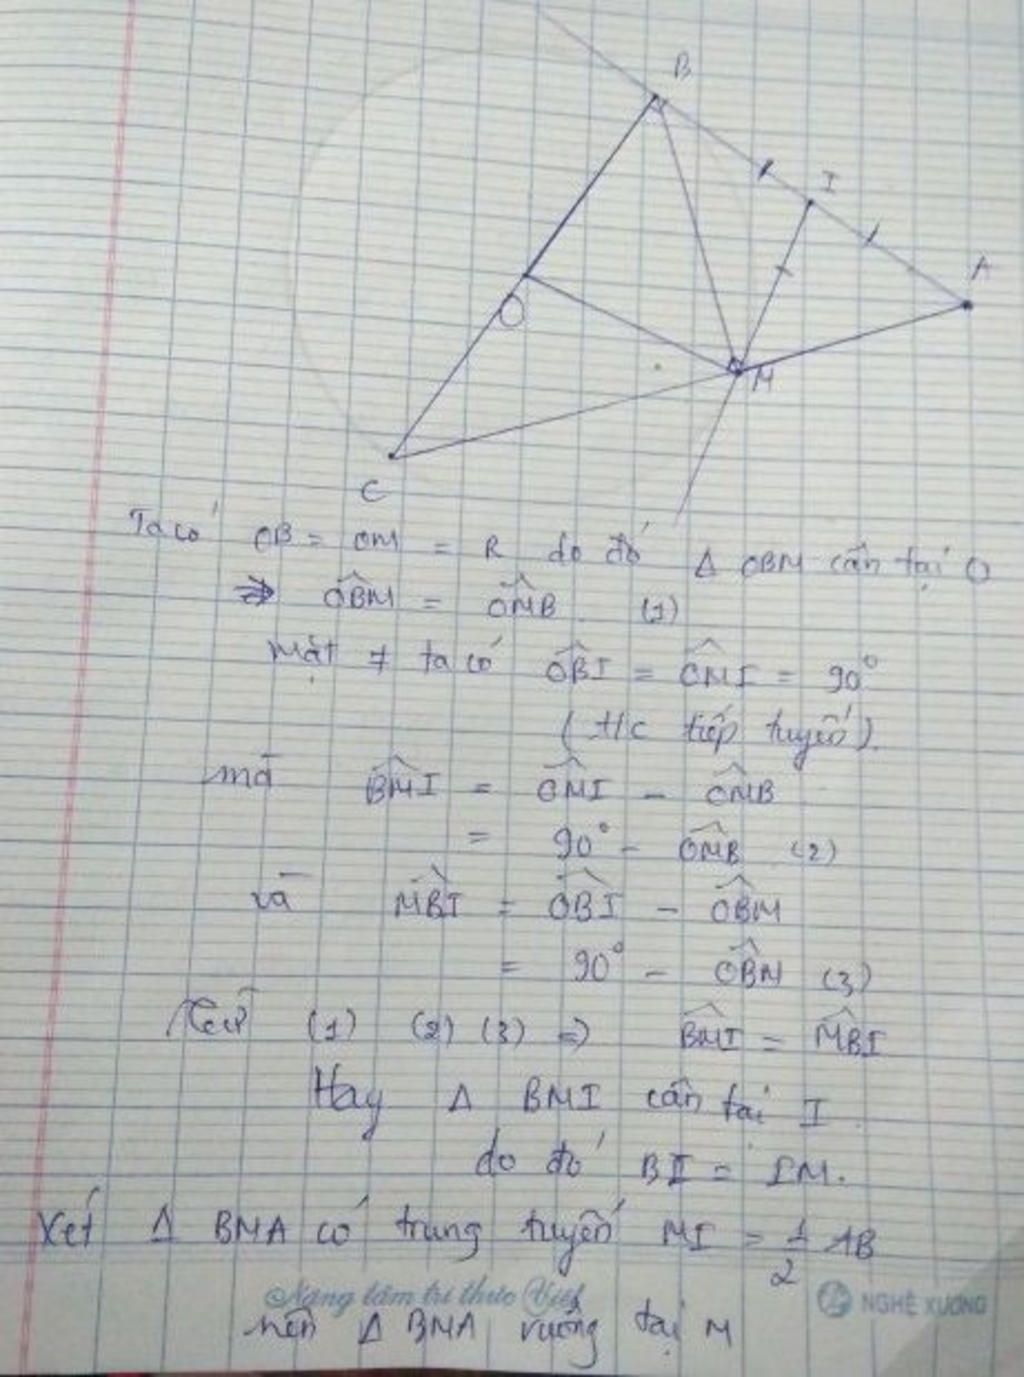 B
I
A
O
M
C
Ta có OB = OM = R do đó Δ OBM cân tại O
=> OBM = OMB (1)
Mặt ≠ ta có OBI = OMI = 90°
( t/c tiếp tuyến).
mà BMI = OMI - OMB
= 90° - OMB (2)
và MBI = OBI - OBM
= 90° - OBM (3)
Từ (1) (2) (3) => BMI = MBI
Hay Δ BMI cân tại I
do đó BI = IM.
Xét Δ BMA có trung tuyến MI = 1/2 AB
Nâng tầm tri thức Việt NGHÊ XUÔNG
nên Δ BMA vuông tại M